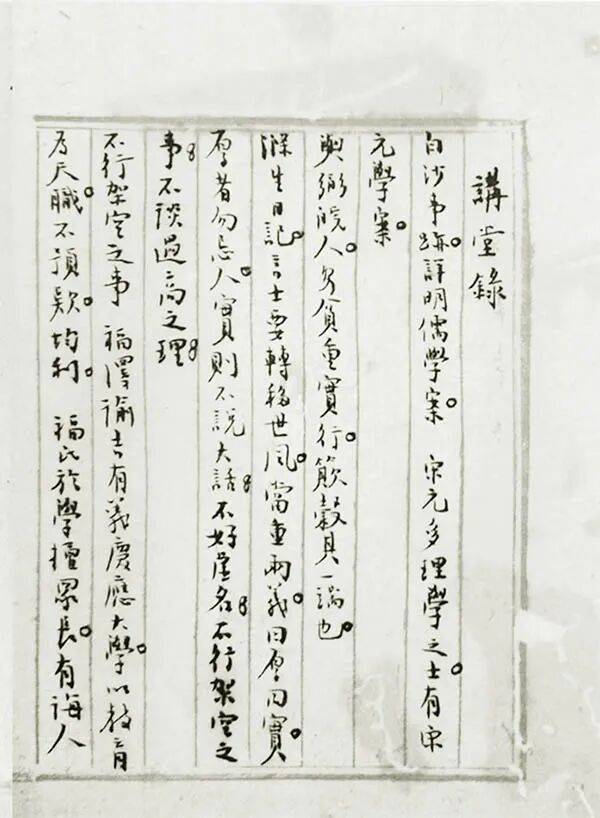 講堂錄
白沙事跡。詳明儒學案。宋元多理學之士。有宋
元學案。
與弼皖人。貧重實行。簸穀具一端也。
滌生日記。言士要轉移世風。當重兩義。曰厚曰實。
厚者勿忌人。實則不說大話。不好虛名。不行架空之
事。不談過高之理。
不行架空之事 福澤諭吉有義慶應大學。以教育
為天職。不預款。均利。福氏於學擅眾長。有誨人